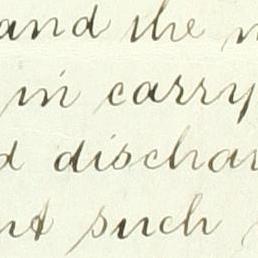 and the
in carry
d dischar
nt such